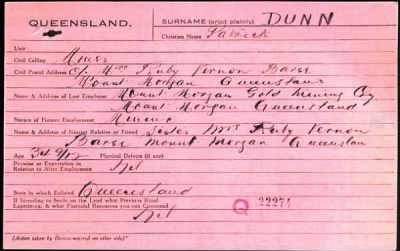 QUEENSLAND.
SURNAME (print plainly) DUNN
Christian Name Patrick
Unit
Civil Calling Miner
Civil Postal Address C/. Mrs Ruby Vernon Baree
Mount Morgan Queensland
Name & Address of Last Employer Mount Morgan Gold Mining Coy
Mount Morgan Queensland
Nature of Former Employment Mining
Name & Address of Nearest Relative or Friend Sister Mrs Ruby Vernon
Baree Mount Morgan Queensland
Age 34 9/12 Physical Defects (if any)
Promise or Expectation in
Relation to After Employment Nil
State in which Enlisted Queensland
If Intending to Settle on the Land what Previous Rural
Experience, & what Financial Resources you can Command
Nil
Q 22274
(Action taken by Bureau entered on other side)